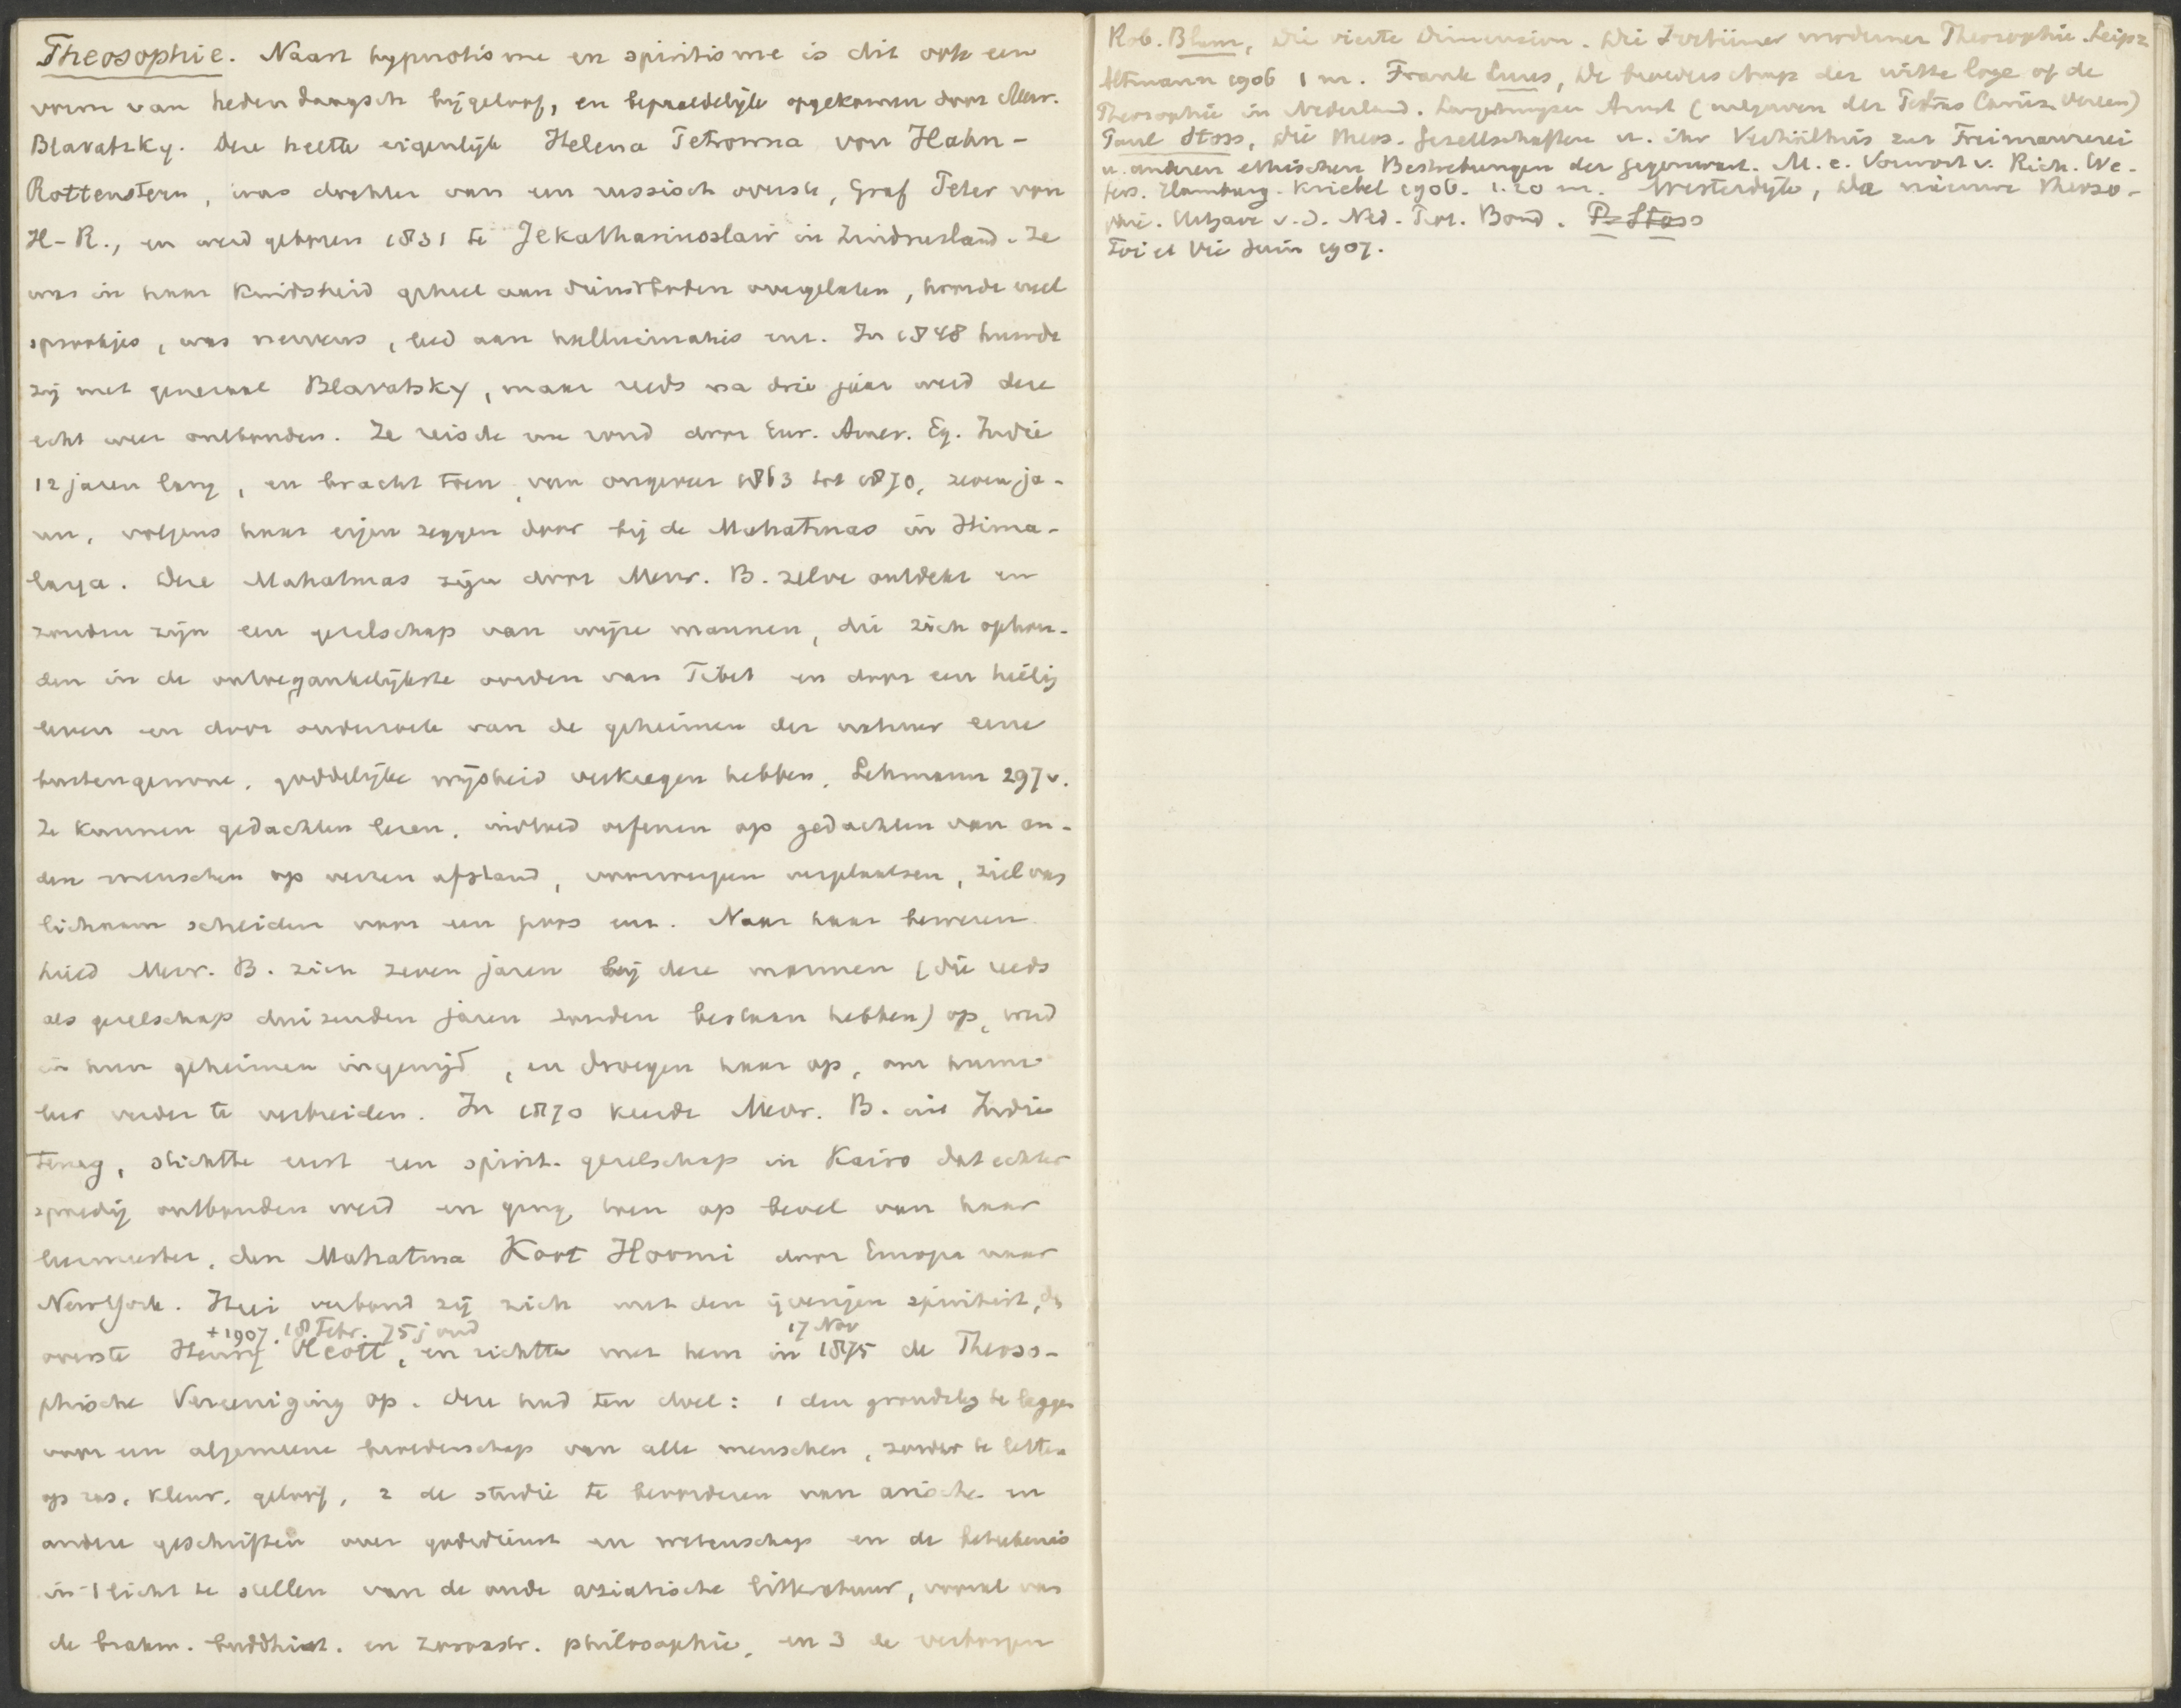 Theosophie. Naast hypnotisme en spiritisme is dit ook een
vorm van hedendaagsch bijgeloof, en bepaaldelijk opgekomen door Mevr.
Blavatzky. Deze heette eigenlijk Helena Petrowna von Hahn-
Rottenstern, was dochter van een russisch overste, Graf Peter von
H-R., en werd geboren 1831 te Jekatharinoslaw in Zuidrusland. Ze
was in haar kindsheid geheel aan dienstboden overgelaten, hoorde veel
sprookjes, was nerveus, leed aan hallucinaties enz. In 1848 huwde
zij met generaal Blavatsky, maar reeds na drie jaar werd deze
echt weer ontbonden. Ze reisde nu rond door Eur. Amer. Eg. Indie
12 jaren lang, en bracht toen, van ongeveer 1863 tot 1870, zeven ja-
ren, volgens haar eigen zeggen door bij de Mahatmas in Hima-
laya. Deze Mahatmas zijn door Mevr. B. zelve ontdekt en
zouden zijn een gezelschap van wijze mannen, die zich ophou-
den in de ontoegankelijkste oorden van Tibet en door een heilig
leven en door onderzoek van de geheimen der natuur eene
buitengewone, goddelijke wijsheid verkregen hebben, Lehmann 297v.
Ze kunnen gedachten lezen, invloed oefenen op gedachten van an-
dere menschen op verren afstand, voorwerpen verplaatsen, ziel van
lichaam scheiden voor een poos enz. Naar haar beweren
hield Mevr. B. zich zeven jaren bij deze mannen (die reeds
als gezelschap duizenden jaren zouden bestaan hebben) op, werd
in hun geheimen ingewijd, en droegen haar op, om hunne
leer verder te verbreiden. In 1870 keerde Mevr. B. uit Indie
terug, stichtte eerst een spirit. gezelschap in Kairo dat echter
spoedig ontbonden werd en ging toen op bevel van haar
leermeester, den Mahatma Koot Hoomi door Europa naar
NewYork. Hier verbond zij zich met den ijverigen spiritist, de
+1907. 18 Febr. 75 j oud 17 Nov
overste Henry Olcott, en richtte met hem in 1875 de Theoso-
phische Vereeniging op. Deze had ten doel: 1 den grondslag te leggen
voor een algemeene broederschap van alle menschen, zonder te letten
op ras, kleur, geloof, 2 de studie te bevorderen van arische en
andere geschriften over godsdienst en wetenschap en de beteekenis
in 't licht te stellen van de oude aziatische litteratuur, vooral van
de brahm. buddhist. en zoroastr. philosophie, en 3 de verborgen
Rob. Blum, Die vierte Dimension. Die Irrtümer moderner Theosophie. Leipz
Altmann 1906 1 m. Frank Luns, De broederschap der witte loge of de
Theosophie in Nederland. Amst (uitgeven der
Paul Stoss, Die theos. Gesellschaften u. ihr Verhältnis zur Freimaurerei
u. anderen ethischen Bestrebungen der Gegenwart. M. e. Vorwort v. Rich. We-
fers. Hamburg. Kriebel 1906. 1.20 m. Westerdijk, De nieuwe theoso-
phie. Uitgave v.d. Ned. Prot. Bond. P. Stoss
Foi et Vie Juin 1907.